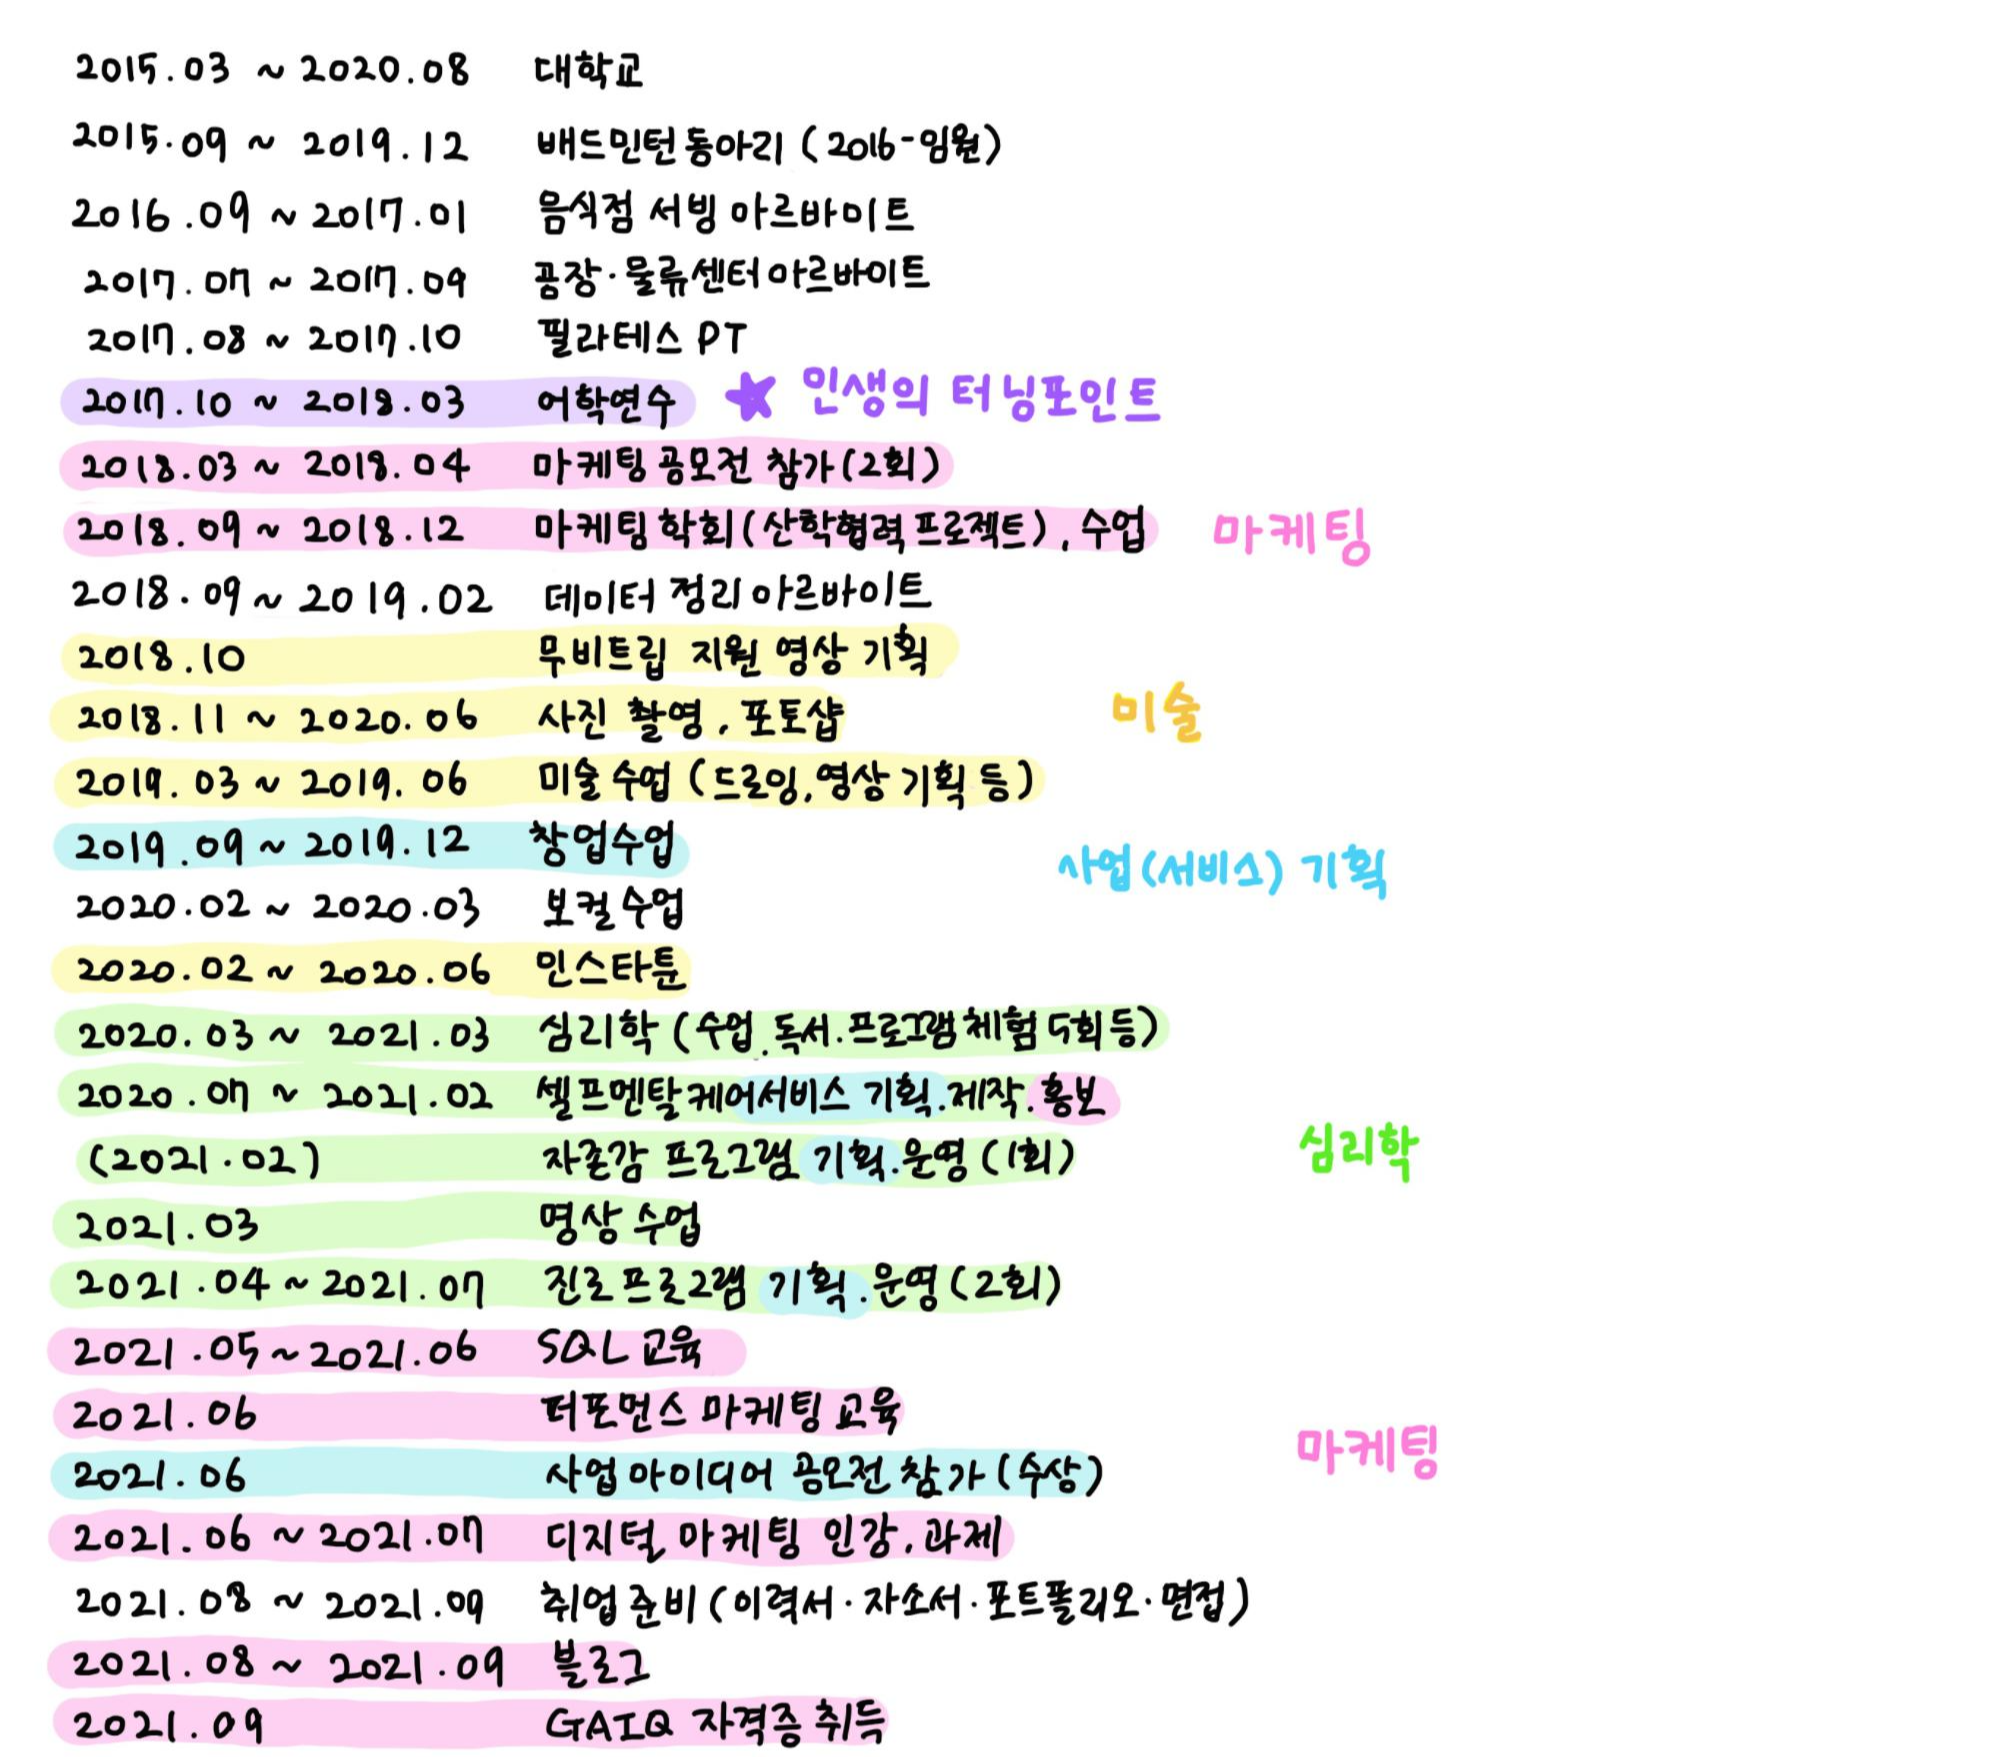 2015.03 ~ 2020.08 대학교
2015.09 ~ 2019.12 배드민턴동아리 (2016-임원)
2016.09 ~ 2017.01 음식점 서빙 아르바이트
2017.07 ~ 2017.09 공장·물류센터아르바이트
2017.08 ~ 2017.10 필라테스 PT
2017.10 ~ 2018.03 어학연수 ★ 인생의 터닝포인트
2018.03 ~ 2018.04 마케팅 공모전 참가(2회)
2018.09 ~ 2018.12 마케팅 학회(산학협력 프로젝트), 수업 마케팅
2018.09 ~ 2019.02 데이터 정리 아르바이트
2018.10 무비트립 지원 영상 기획
2018.11 ~ 2020.06 사진 촬영, 포토샵 미술
2019.03 ~ 2019.06 미술 수업 (드로잉, 영상 기획 등)
2019.09 ~ 2019.12 창업수업 사업(서비스) 기획
2020.02 ~ 2020.03 보컬 수업
2020.02 ~ 2020.06 인스타툰
2020.03 ~ 2021.03 심리학 (수업.독서.프로그램체험 5회 등)
2020.07 ~ 2021.02 셀프멘탈케어서비스 기획.제작.홍보
(2021.02) 자존감 프로그램 기획.운영 (1회) 심리학
2021.03 명상 수업
2021.04 ~ 2021.07 진로 프로그램 기획.운영 (2회)
2021.05 ~ 2021.06 SQL 교육
2021.06 퍼포먼스 마케팅 교육 마케팅
2021.06 사업 아이디어 공모전 참가 (수상)
2021.06 ~ 2021.07 디지털 마케팅 인강, 과제
2021.08 ~ 2021.09 취업 준비 (이력서·자소서·포트폴리오·면접)
2021.08 ~ 2021.09 블로그
2021.09 GAIQ 자격증 취득